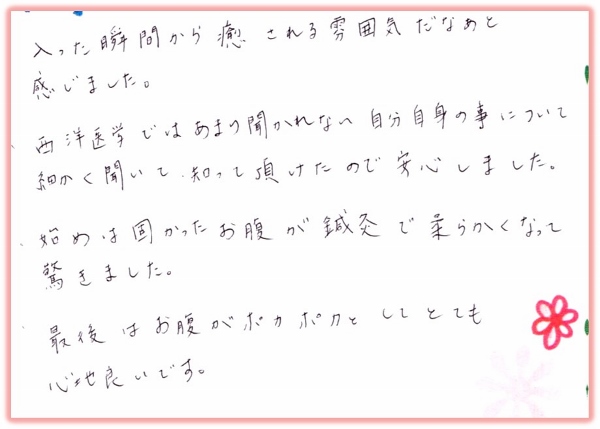 入った瞬間から癒される雰囲気だなぁと
感じました。
西洋医学ではあまり聞かれない自分自身の事について
細かく聞いて知って頂けたので安心しました。
始めは固かったお腹が鍼灸で柔らかくなって
驚きました。
最後はお腹がポカポカとしてとても
心地良いです。